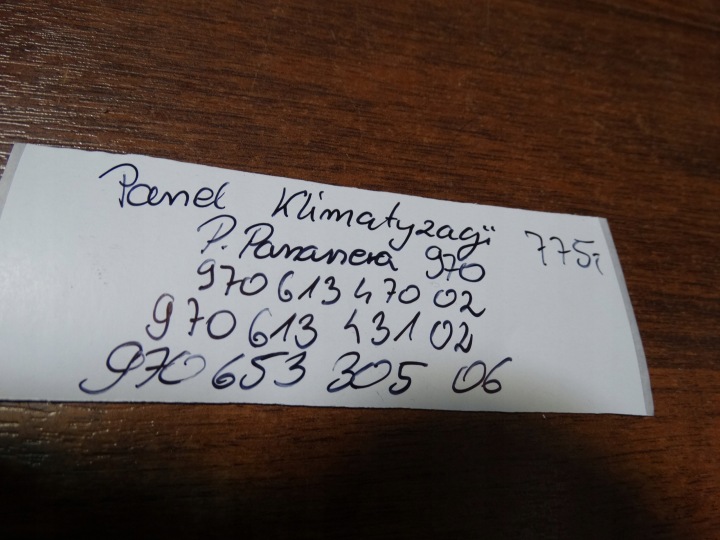 Panel Klimatyzacji 775i
P. Panamera 970
970 613 470 02
970 613 431 02
970 653 305 06